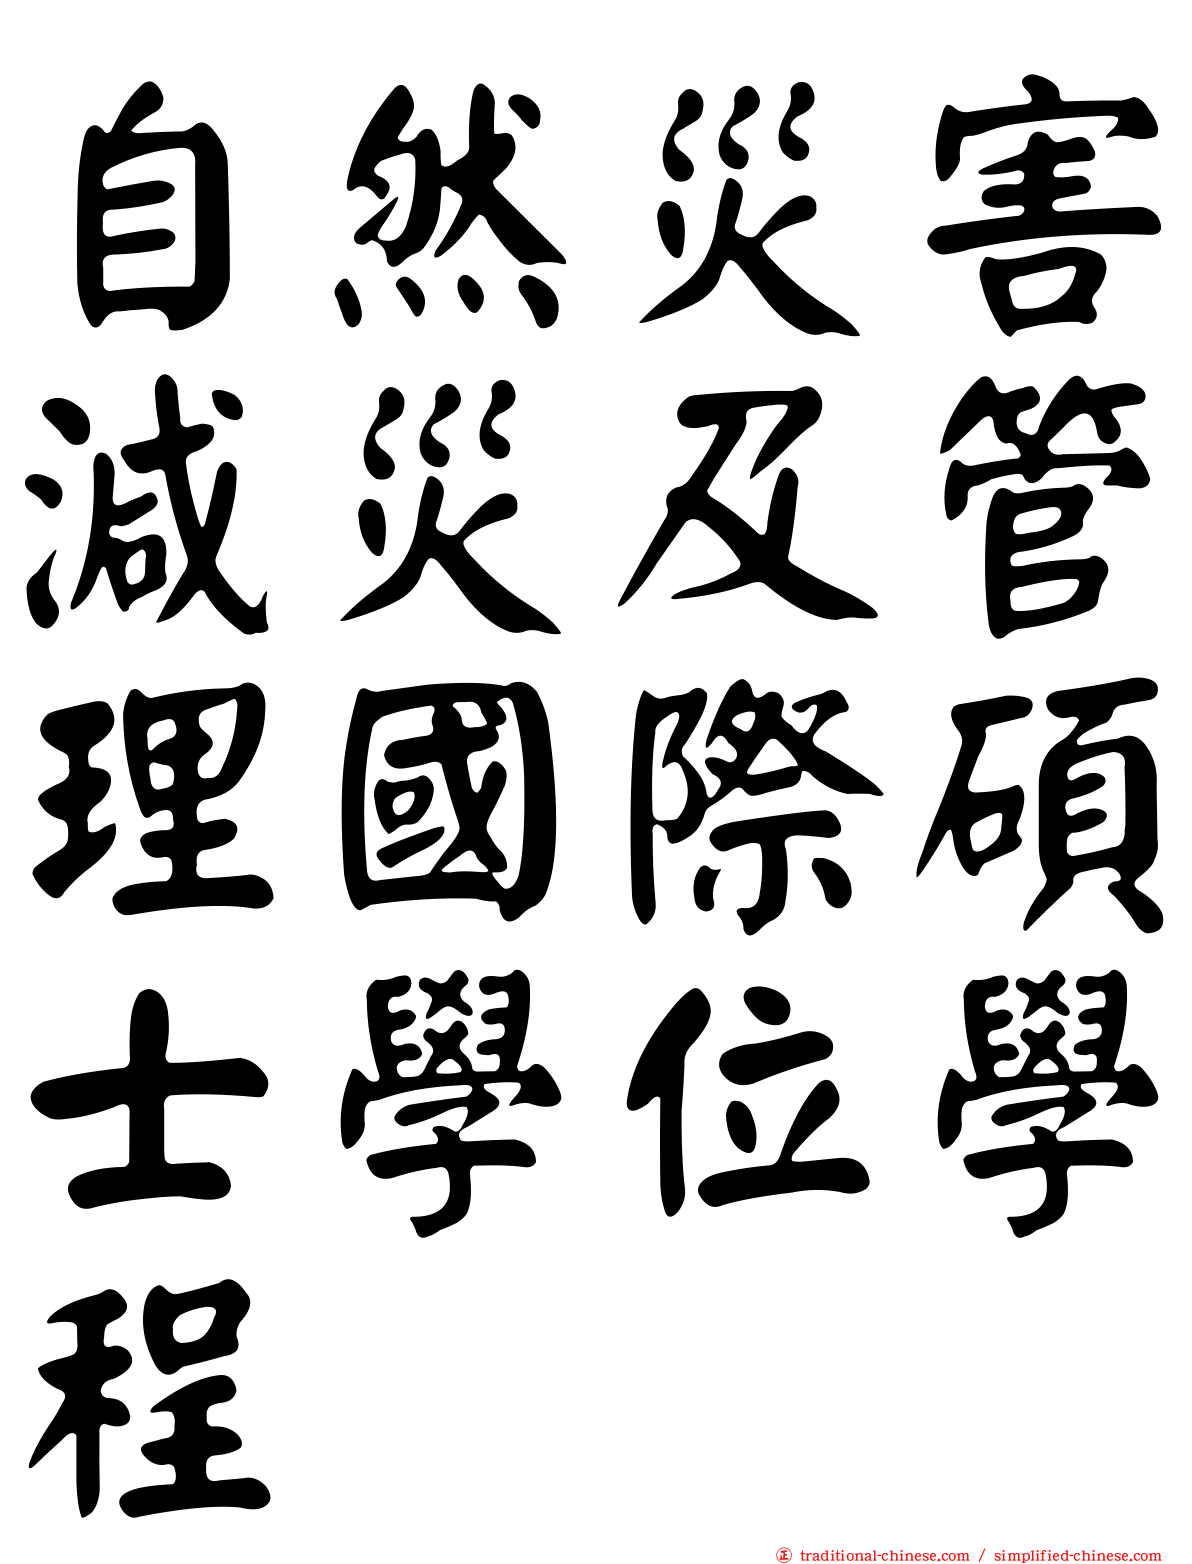 自然災害
減災及管
理國際碩
士學位學
程
正 traditional-chinese.com / simplified-chinese.com